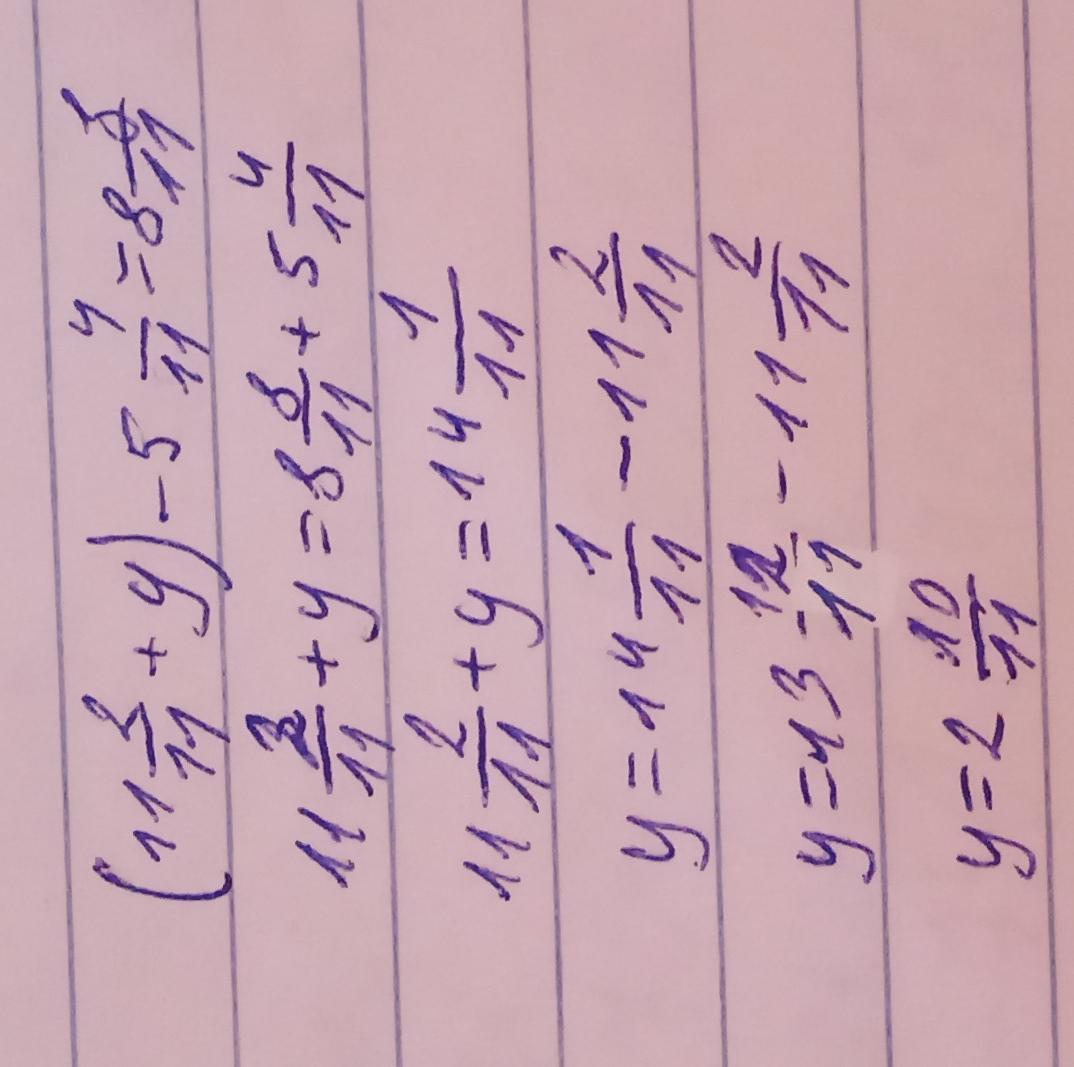 (11 2/11 + y) - 5 4/11 = 8 8/11
11 2/11 + y = 8 8/11 + 5 4/11
11 2/11 + y = 14 1/11
y = 14 1/11 - 11 2/11
y = 13 12/11 - 11 2/11
y = 2 10/11